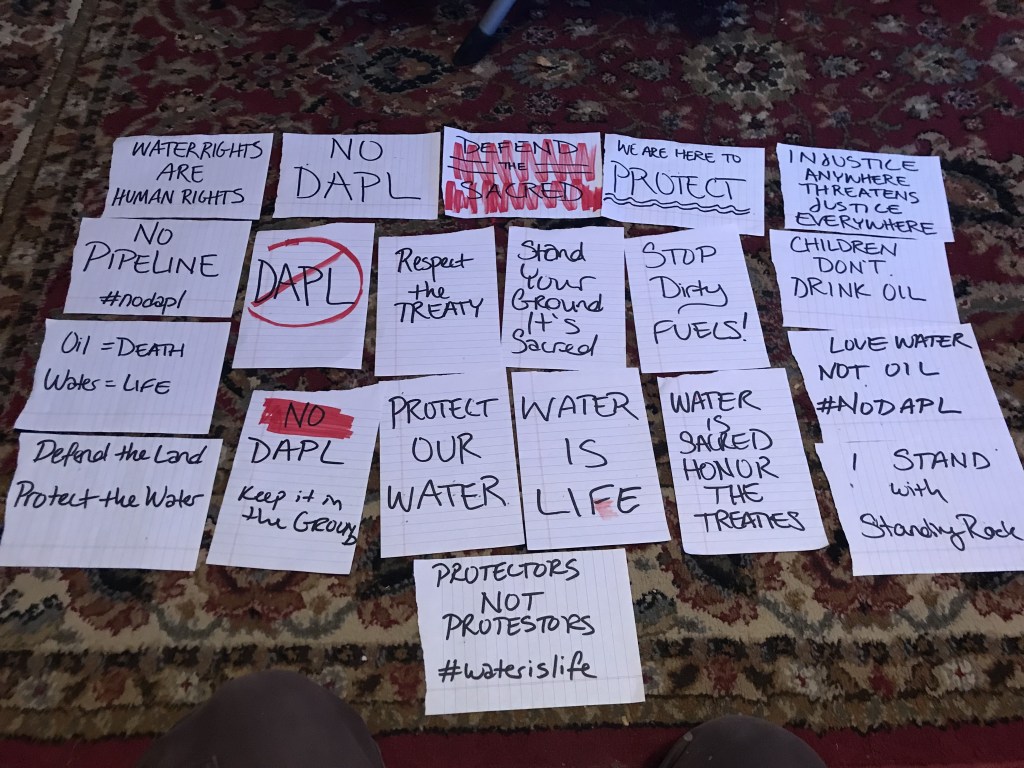 WATERRIGHTS
ARE
HUMAN RIGHTS
NO
DAPL
DEFEND
THE
SACRED
WE ARE HERE TO
PROTECT
INJUSTICE
ANYWHERE
THREATENS
JUSTICE
EVERYWHERE
NO
PIPELINE
#nodapl
DAPL
Respect
the
TREATY
Stand
Your
Ground
It's
Sacred
STOP
Dirty
FUELS!
CHILDREN
DON'T
DRINK OIL
Oil = DEATH
Water = LIFE
NO
DAPL
Keep it in
the GROUND
PROTECT
OUR
WATER
WATER
IS
LIFE
WATER
IS
SACRED
HONOR
THE
TREATIES
LOVE WATER
NOT OIL
#NODAPL
Defend the Land
Protect the Water
I STAND
with
Standing Rock
PROTECTORS
NOT
PROTESTORS
#waterislife